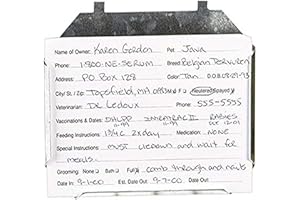 Name of Owner: Karen Gordon Pet: Java
Phone: 1-800-NE-SERUM Breed: Belgian Tervuren
Address: PO Box 128 Color: Tan DOB: 08-29-93
City/St./Zip: Topsfield, MA 01983 M F Neutered/Spayed
Veterinarian: Dr Ledoux Phone: 555-5555
Vaccinations & Dates: DHLPP 11-99 INTRATRAC II 11-99 RABIES
Feeding Instructions: 2xday Medication: NONE
Special Instructions: MUST lie down and wait for
meals.
Grooming: None Bath Full comb through and nails
Date In: 9-1-00 Est. Date Out: 9-7-00 By: